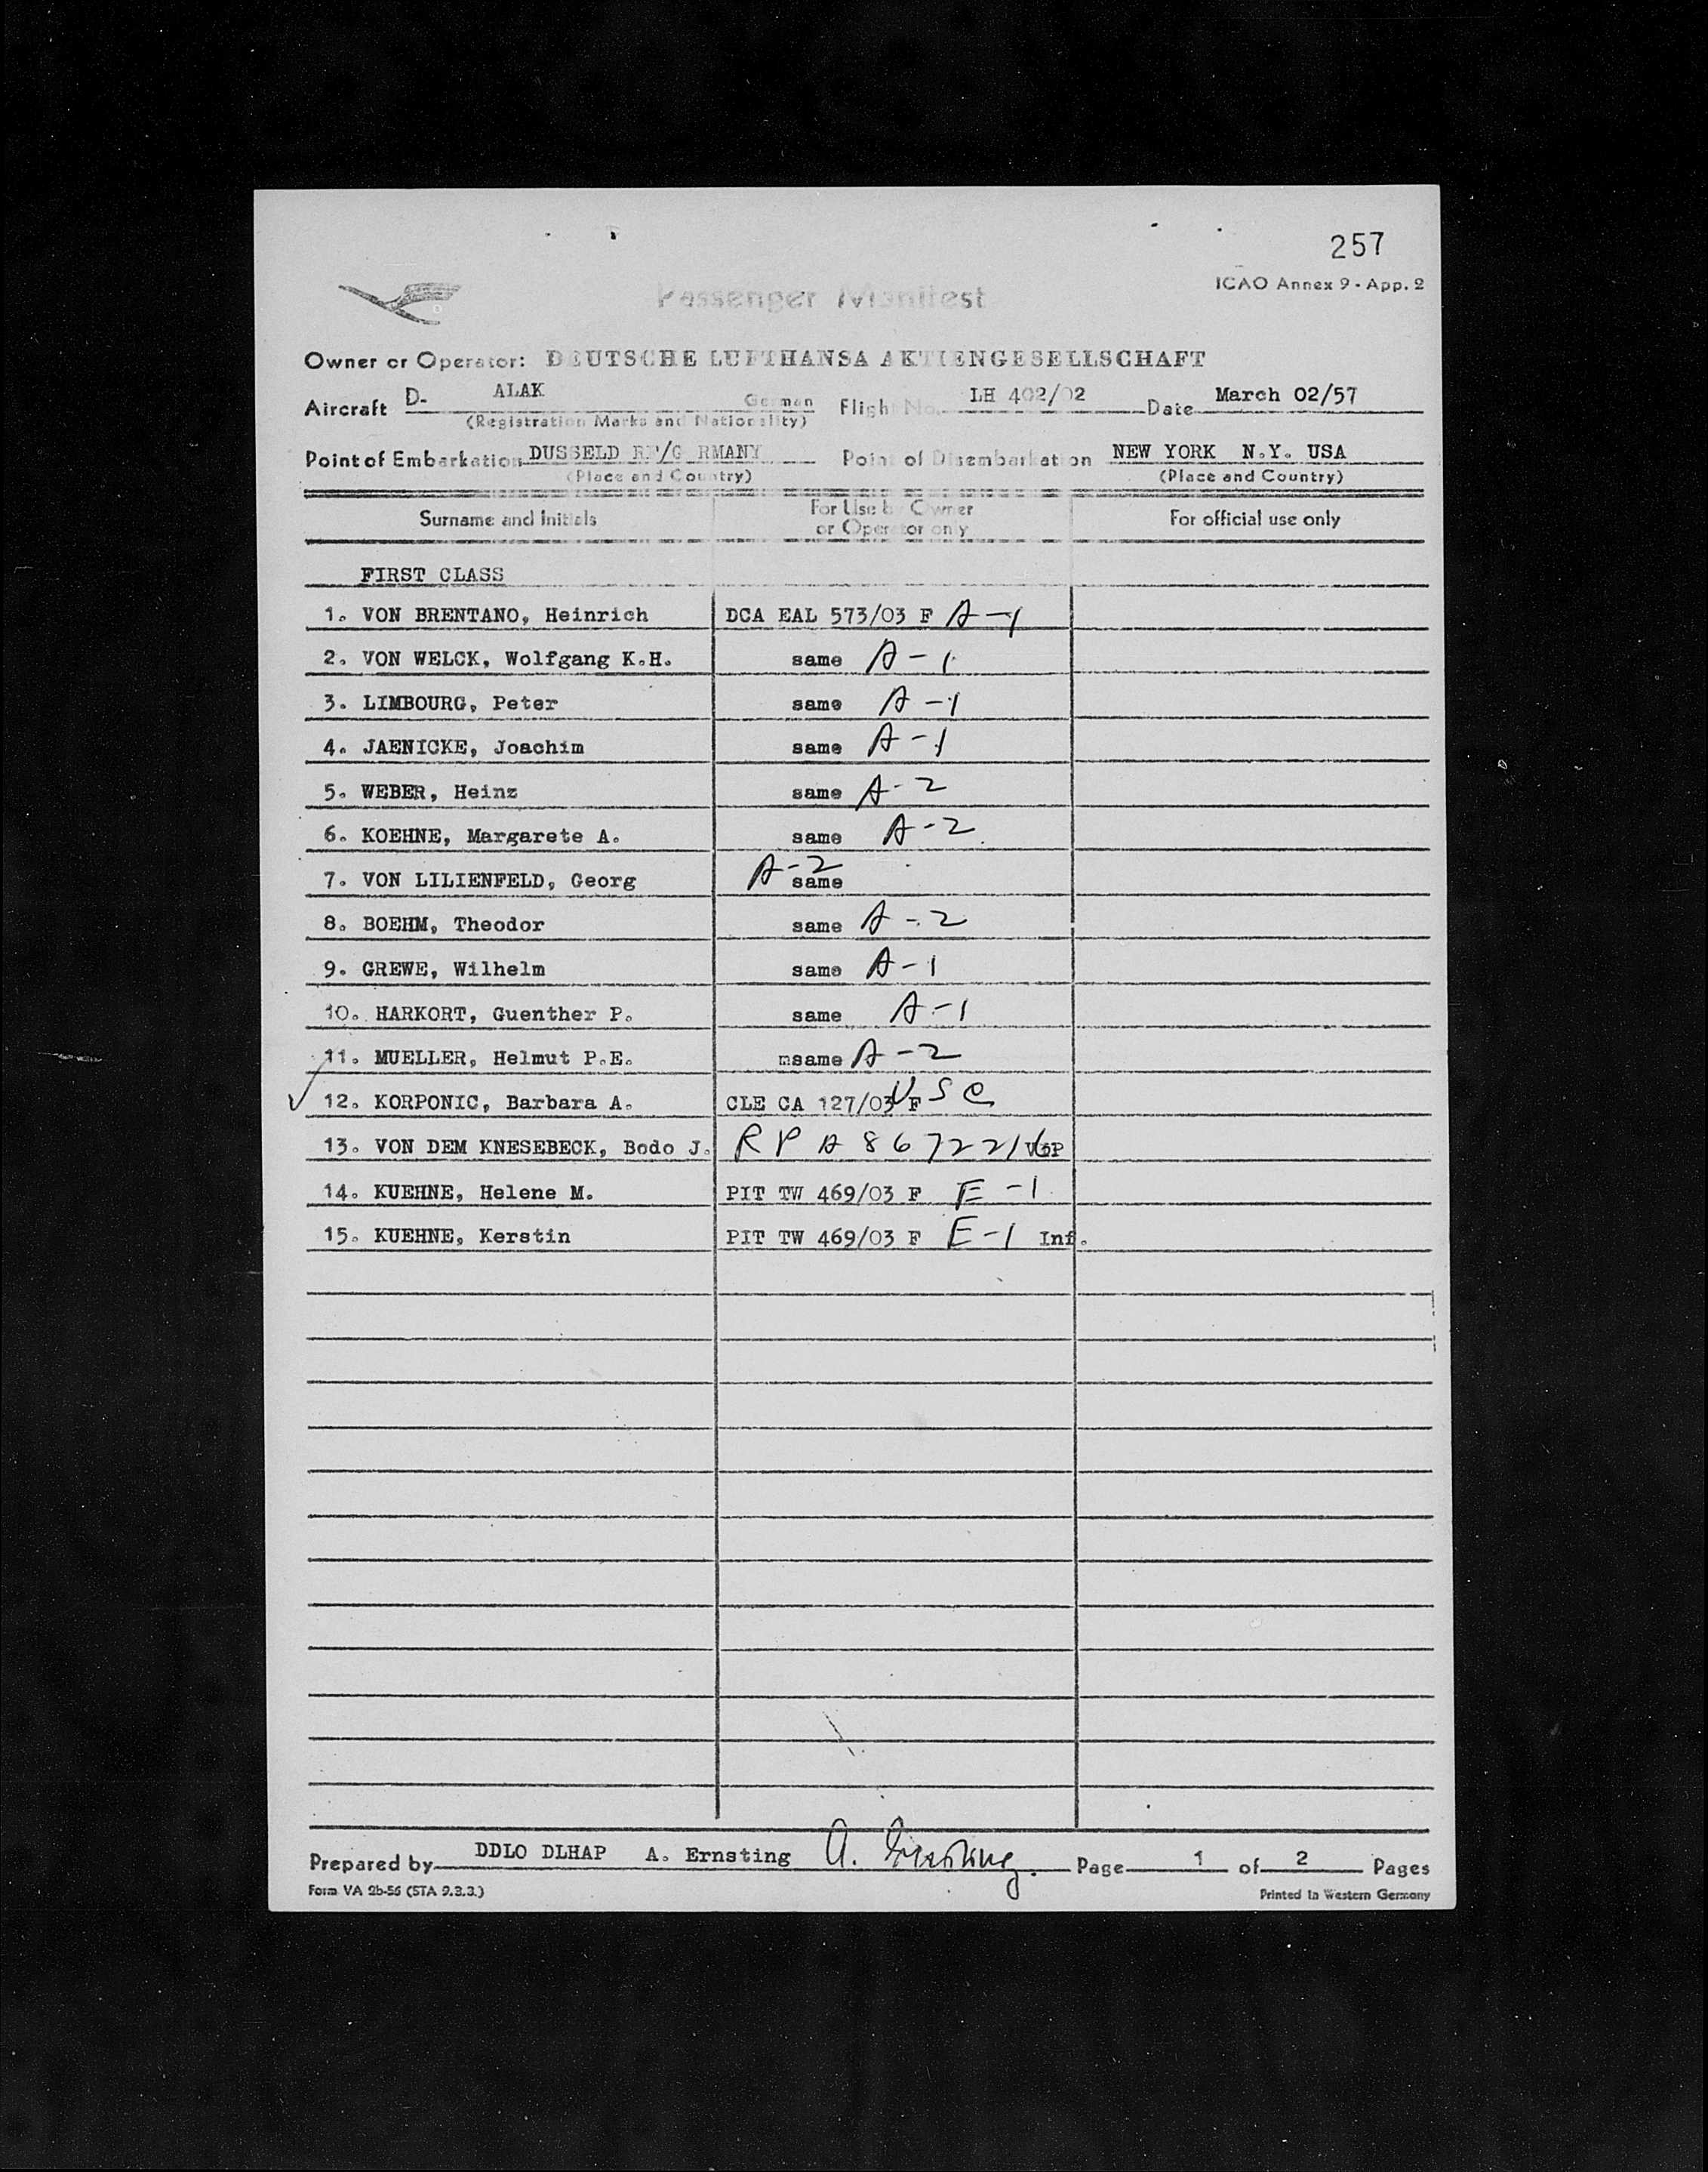 257
ICAO Annex 9 - App. 2
Passenger Manifest
Owner or Operator: DEUTSCHE LUFTHANSA AKTIENGESELLSCHAFT
Aircraft D- ALAK German Flight No. LH 402/02 Date March 02/57
(Registration Marks and Nationality)
Point of Embarkation DUSSELD RF/G RMANY Point of Disembarkation NEW YORK N.Y. USA
(Place and Country) (Place and Country)
Surname and Initials For Use by Owner or Operator only For official use only
FIRST CLASS
1. VON BRENTANO, Heinrich DCA EAL 573/03 F A-1
2. VON WELCK, Wolfgang K.H. same A-1
3. LIMBOURG, Peter same A-1
4. JAENICKE, Joachim same A-1
5. WEBER, Heinz same A-2
6. KOEHNE, Margarete A. same A-2
7. VON LILIENFELD, Georg same A-2
8. BOEHM, Theodor same A-2
9. GREWE, Wilhelm same A-1
10. HARKORT, Guenther P. same A-1
11. MUELLER, Helmut P.E. msame A-2
12. KORPONIC, Barbara A. CLE CA 127/03 F USC
13. VON DEM KNESEBECK, Bodo J. RP A 8672216
14. KUEHNE, Helene M. PIT TW 469/03 F E-1
15. KUEHNE, Kerstin PIT TW 469/03 F E-1 Inf.
Prepared by DDLO DLHAP A. Ernsting A. Ernsting. Page 1 of 2 Pages
Form VA 2b-56 (STA 9.3.3.) Printed in Western Germany